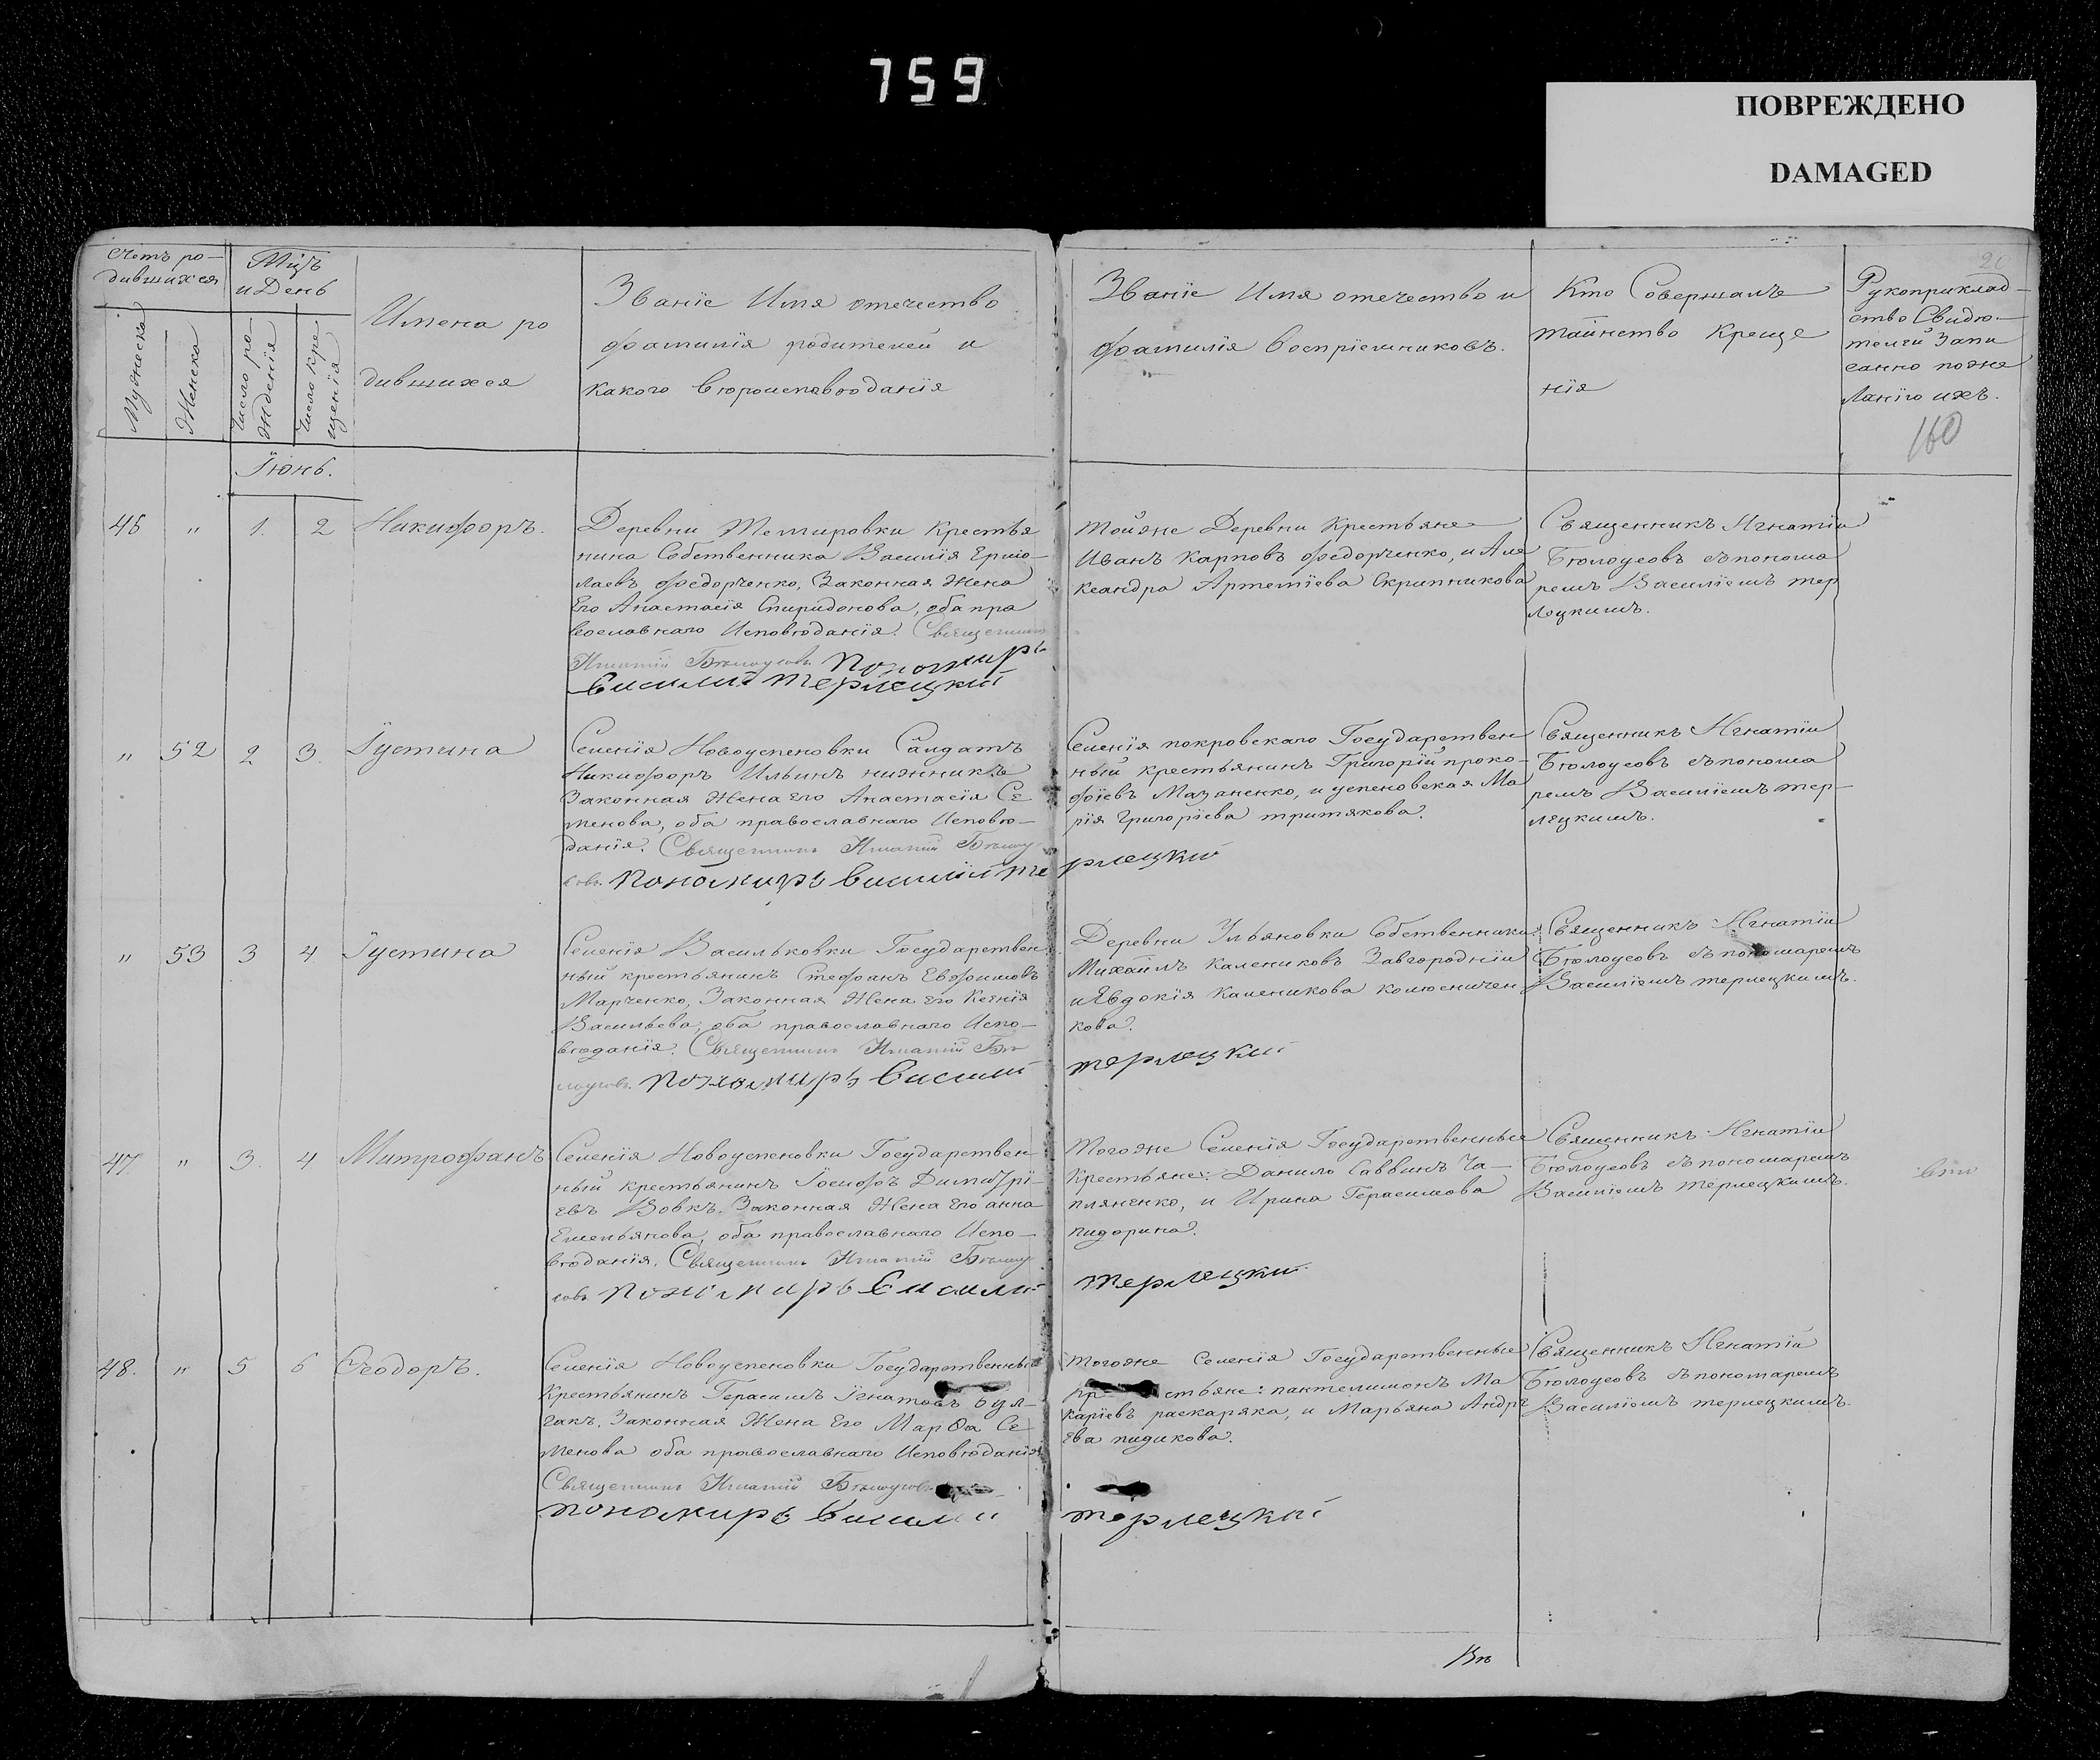 759
ПОВРЕЖДЕНО
DAMAGED
Счетъ ро-
дившихся
Мужеска
Женска
Мцъ
и День
Число ро-
жденія
Число кре
щенія
Имена ро
дившихся
Званіе Имя отечество
фамилія родителей и
какого вѣроисповѣданія
Званіе Имя отечество и
фамилія воспріемниковъ.
Кто Совершалъ
таинство Креще
нія
Рукоприклад-
ство Свидѣ-
телей Запи
санно по же
ланію ихъ.
160
Іюнь.
46 " 1. 2 Никифоръ.
Деревни Темировки Крестья
нина Собственника Василія Ермо-
лаевъ Федорченко, Законная Жена
Его Анастасія Спиридонова, оба пра
вославнаго Исповѣданія. Священникъ
Игнатій Бѣлоусовъ Пономаръ
Василий Терлецкий
Тойже Деревни Крестьяне
Иванъ Карповъ Федорченко, и Але
ксандра Артемiева Скрипникова
Священникъ Игнатій
Бѣлоусовъ съ понома
ремъ Василіемъ тер
лецкимъ.
" 52 2 3. Іустина
Селенія Новоуспеновки Салдатъ
Никифоръ Ильинъ нижникъ
Законная Жена его Анастасія Се
менова, оба православнаго Исповѣ-
данія. Священникъ Игнатій Бѣлоу
совъ Пономаръ Василий Те
рлецкий
Селенія покровскаго Государствен
ный крестьянинъ Григорій проко-
фіевъ Мазаненко, и успеновская Ма
рія Григорiева третякова.
Священникъ Игнатій
Бѣлоусовъ съ понома
ремъ Василіемъ тер-
лецкимъ.
" 53 3 4 Іустина
Селенія Васильковки Государствен
ный крестьянинъ Стефанъ Евфимовъ
Марченко, Законная Жена его Ксенія
Васильева, оба православнаго Испо-
вѣданія. Священникъ Игнатій Бѣ
лоусовъ. Пономаръ Василий
терлецкий
Деревни Ульяновки Собственники
Михаилъ Калениковъ Завгородній
и Евдокія Каленикова колесничен
кова.
Священникъ Игнатій
Бѣлоусовъ съ пономаремъ
Василіемъ терлецкимъ.
47 " 3. 4 Митрофанъ
Селенія Новоуспеновки Государствен-
ный крестьянинъ Іосифъ Димитрі-
евъ Вовкъ. Законная Жена Его анна
Емельянова, оба православнаго Испо-
вѣданія. Священникъ Игнатій Бѣлоу
совъ Пономаръ Василий
терлецкий
Тогоже Селенія Государственные
Крестьяне: Данило Саввинъ Ча-
пляненко, и Ирина Герасимова
пидорина.
Священникъ Игнатій
Бѣлоусовъ съ пономаремъ
Василіемъ терлецкимъ.
48. " 5 6 Ѳеодоръ.
Селенія Новоуспеновки Государственный
Крестьянинъ Герасимъ Игнатовъ Бул-
гакъ. Законная Жена Его Марѳа Се
менова оба православнаго Исповѣданія
Священникъ Игнатій Бѣлоусовъ
пономаръ Василий
терлецкий
тогоже Селенія Государственные
кр стьяне: пантелимонъ Ма
каріевъ раскаряка, и Марьяна Андре
ева пидикова.
Священникъ Игнатій
Бѣлоусовъ съ пономаремъ
Василіемъ терлецкимъ.